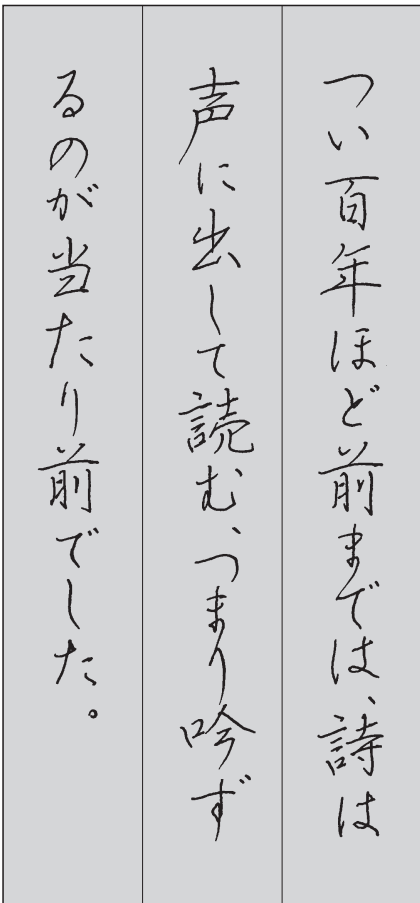 つい百年ほど前までは、詩は
声に出して読む、つまり吟ず
るのが当たり前でした。